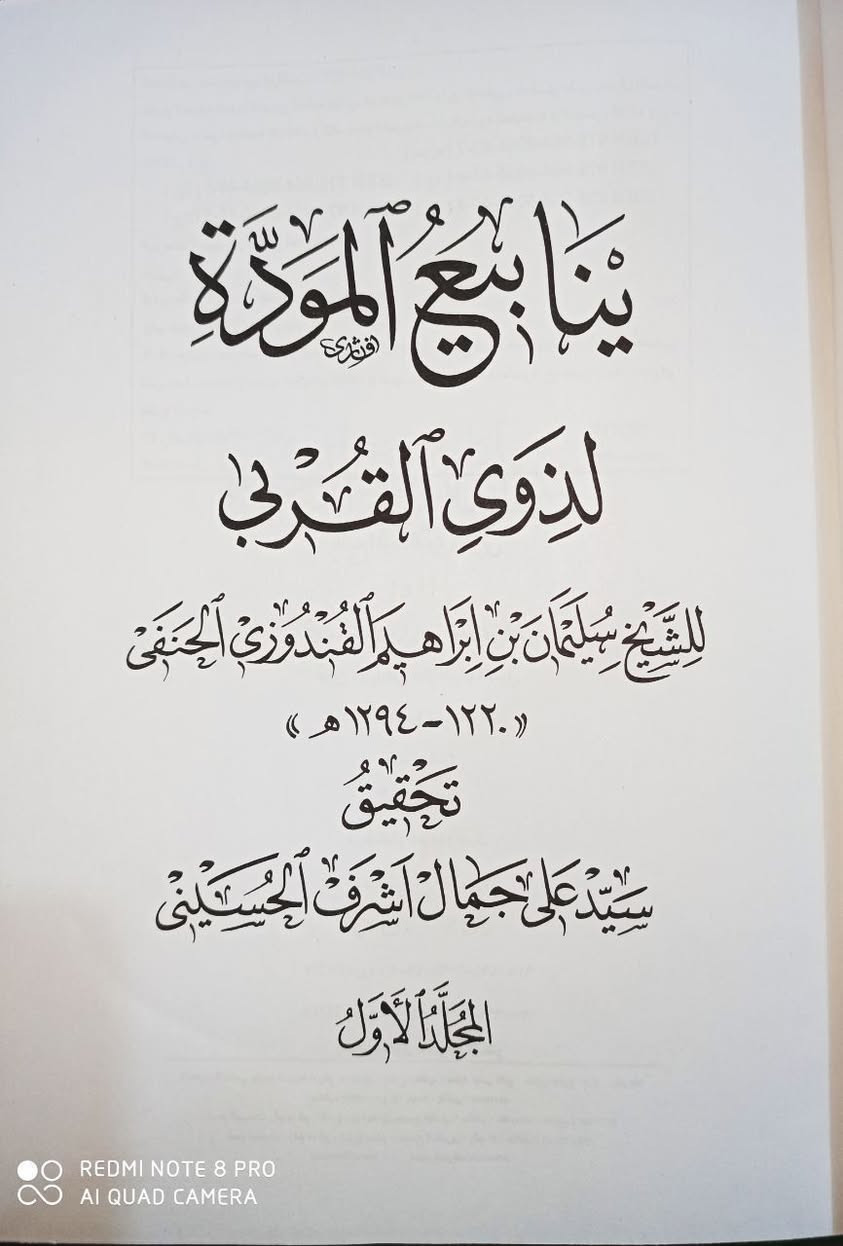 يَنَابِيعُ ٱلْمَوَدَّةِ
لِذَوِي ٱلْقُرْبى
لِلشَّيْخِ سُلَيْمَانَ بْنِ اِبْرَاهيمَ ٱلْقُنْدُوزِيِّ ٱلْحَنَفِيّ
«١٢٢٠-١٢٩٤هـ»
تَحْقيقُ
سَيِّدْ عَلي جَمَالْ اَشْرَفْ ٱلْحُسَيْني
المُجَلَّدُ ٱلْأَوَّلُ
REDMI NOTE 8 PRO
AI QUAD CAMERA